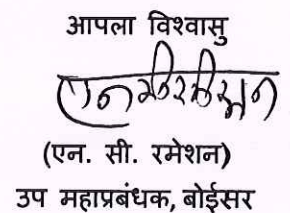 आपला विश्वासु
(एन. सी. रमेशन)
उप महाप्रबंधक, बोईसर